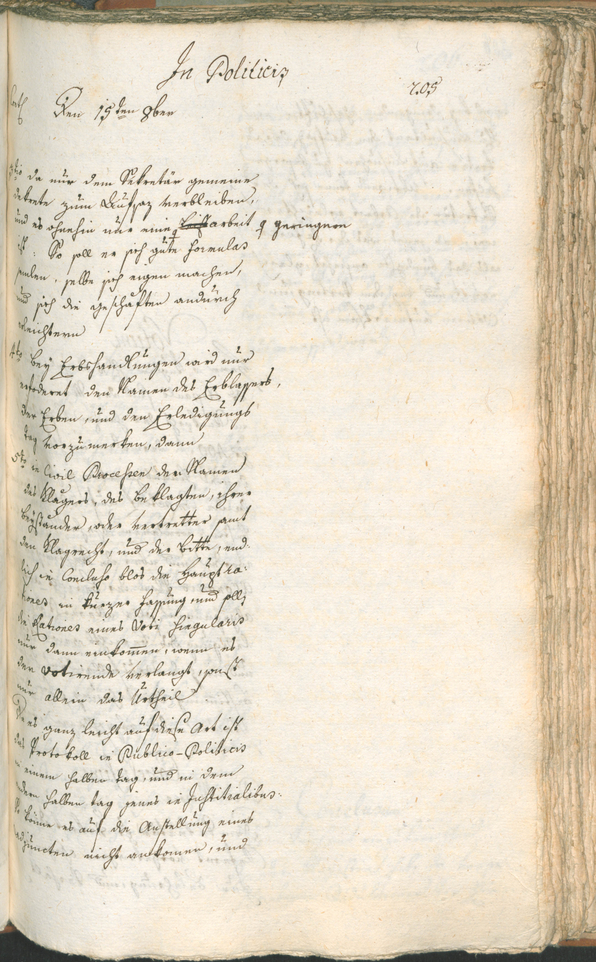 In Politicis
205
Den 15ten 8ber
3tio da nur dem Sekretär gemeine
Dekrete zum Aufsaz verbleiben,
und es ohnehin nur eine arbeit geringere
ist: So soll er sich gute Formulas
samlen, selbe sich eigen machen,
und sich die geschäften andurch
erleichtern
4to Bey Erbshandlungen wird nur
erforderet den Namen des Erblassers,
der Erben, und den Erledigungs
tag vorzumerken, dann
5to in Civil Processen der Namen
des Klägers, des Beklagten, ihrer
Beyständer, oder vertretter samt
dem Klagrecht, und der bitte, end
lich in Concluso blos die Hauptra¬
tiones in kurzer fassung, und solle
die Rationes eines Voti singularis
nur dann einkom̅en, wenn es
der votirende verlangt, sonst
nur allein das Urtheil
Da es ganz leicht auf diese Art ist
das Protokoll in Publico-Politicis
in einem halben tag, und in dem
andern halben tag jenes in Justitialibus
könne es auf die Anstellung eines
adjuncten nicht ankomen, und